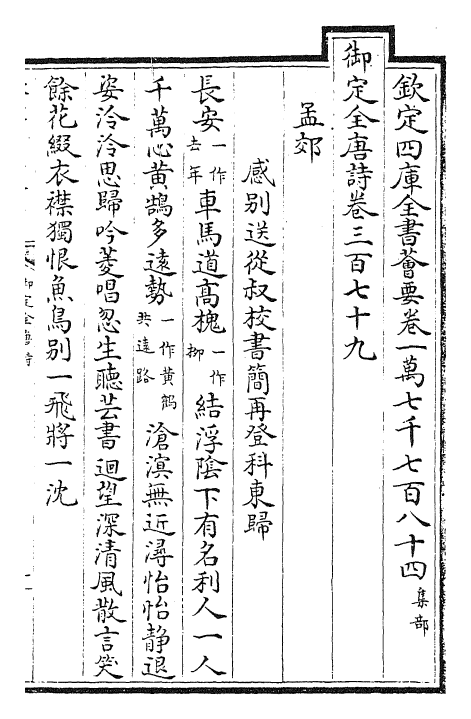 欽定四庫全書薈要卷一萬七千七百八十四 集部
御定全唐詩卷三百七十九
孟郊
感别送從叔校書簡再登科東歸
長安一作去年車馬道高槐一作柳結浮隂下有名利人一人
千萬心黄鵠多遠勢一作黄鶴共遠路滄溟無近潯怡怡静退
姿泠泠思歸吟菱唱忽生聴芸書迴望深清風散言笑
餘花綴衣襟獨恨魚鳥别一飛將一沈